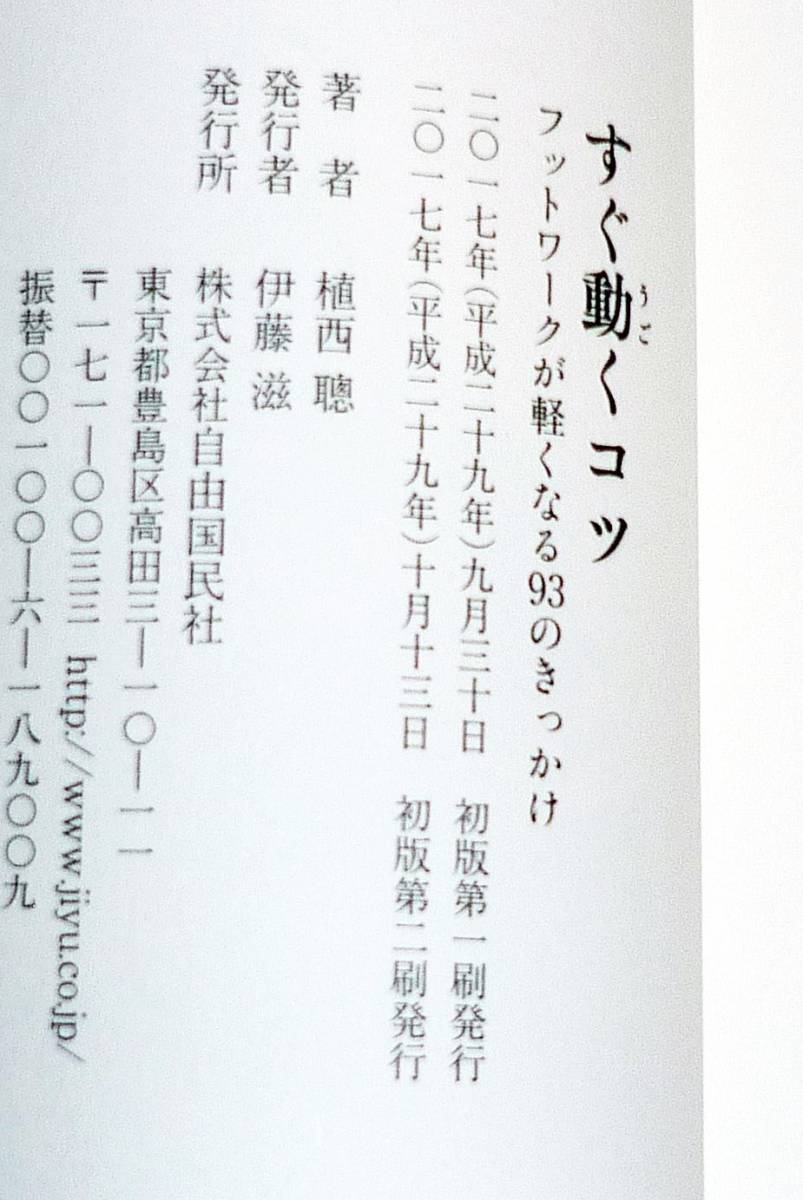 すぐ動くコツ
うご
フットワークが軽くなる93のきっかけ
二〇一七年（平成二十九年）九月三十日　初版第一刷発行
二〇一七年（平成二十九年）十月十三日　初版第二刷発行
著　者　植西 聰
発行者　伊藤 滋
発行所　株式会社自由国民社
東京都豊島区高田三―一〇―一一
〒一七一―〇〇三三　http://www.jiyu.co.jp/
振替〇〇一〇〇―六―一八九〇〇九